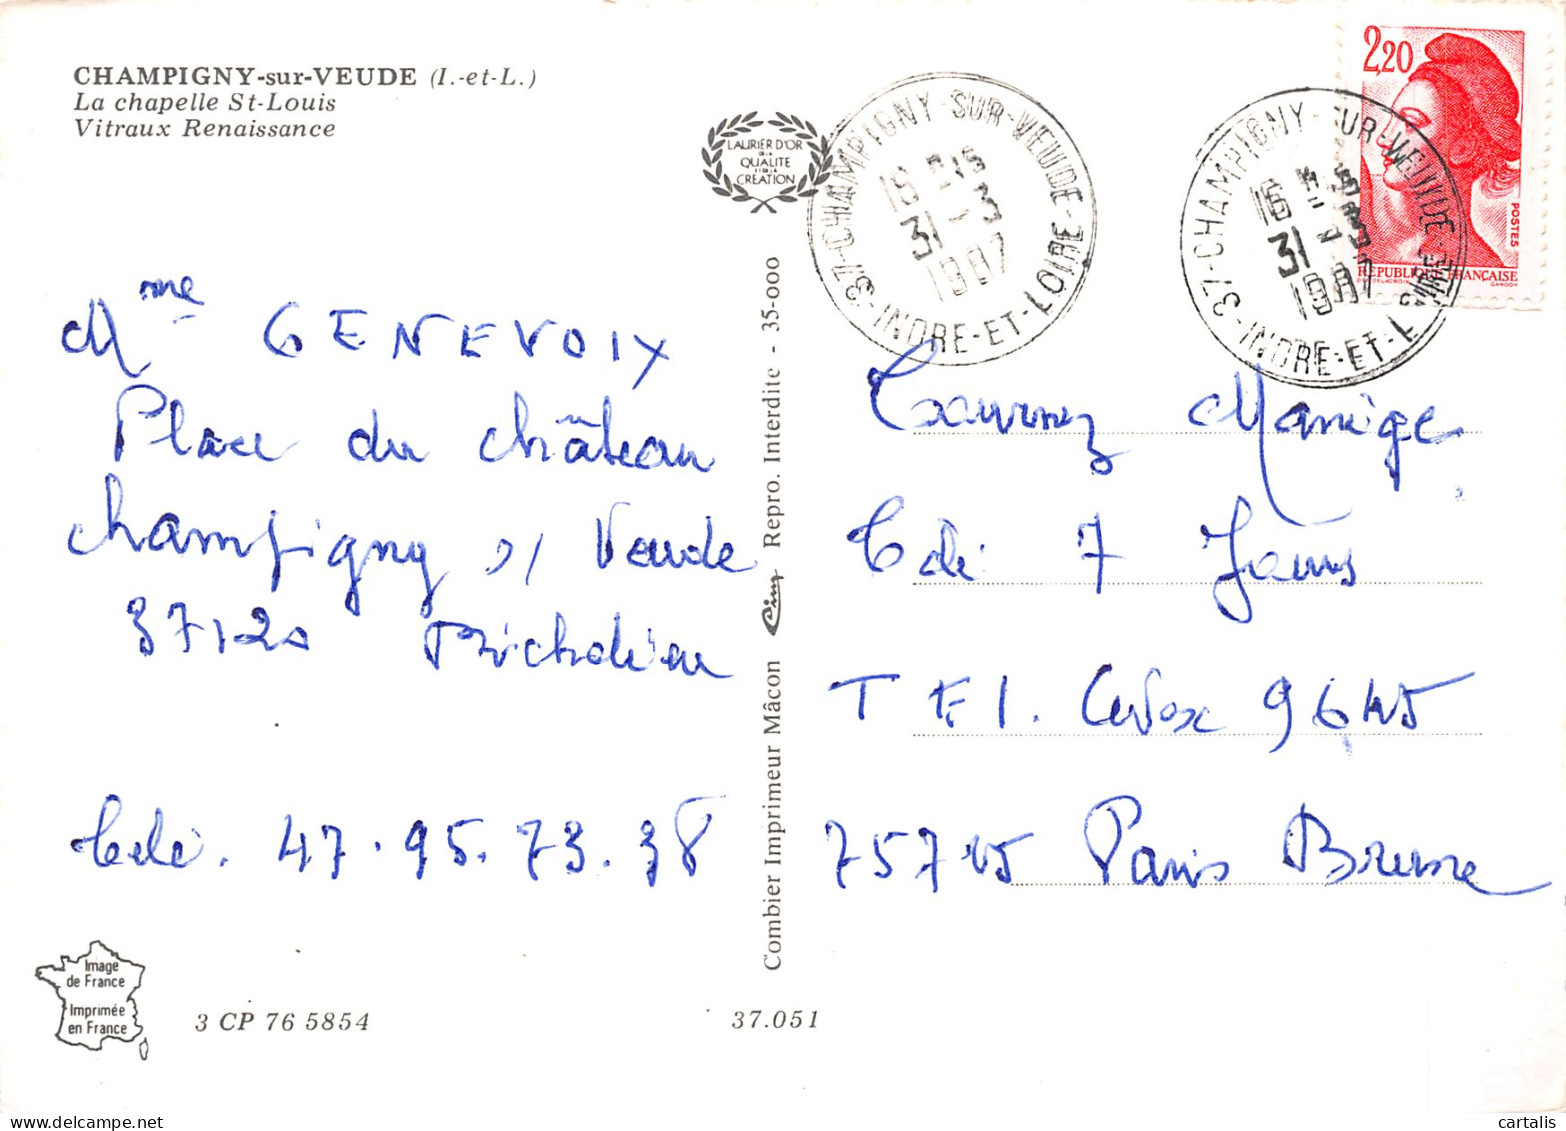 CHAMPIGNY-sur-VEUDE (I.-et-L.)
La chapelle St-Louis
Vitraux Renaissance
LAURIER D'OR
DE LA
QUALITE
ET DE LA
CREATION
37-CHAMPIGNY-SUR-VEUDE
16 H 15
31-3
1987
INDRE-ET-LOIRE
37-CHAMPIGNY-SUR-VEUDE
16 H 15
31-3
1987
INDRE-ET-L
2,20
POSTES
REPUBLIQUE FRANÇAISE
GANDON
Mme GENEVOIX
Place du château
champigny s/ Veude
37120 Richelieu
tele. 47.95.73.38
Tournez Manège
Télé 7 Jours
TF1. Cedex 9645
75715 Paris Brune
Combier Imprimeur Mâcon Cim Repro. Interdite - 35-000
Image
de France
Imprimée
en France
3 CP 76 5854
37.051
cartalis